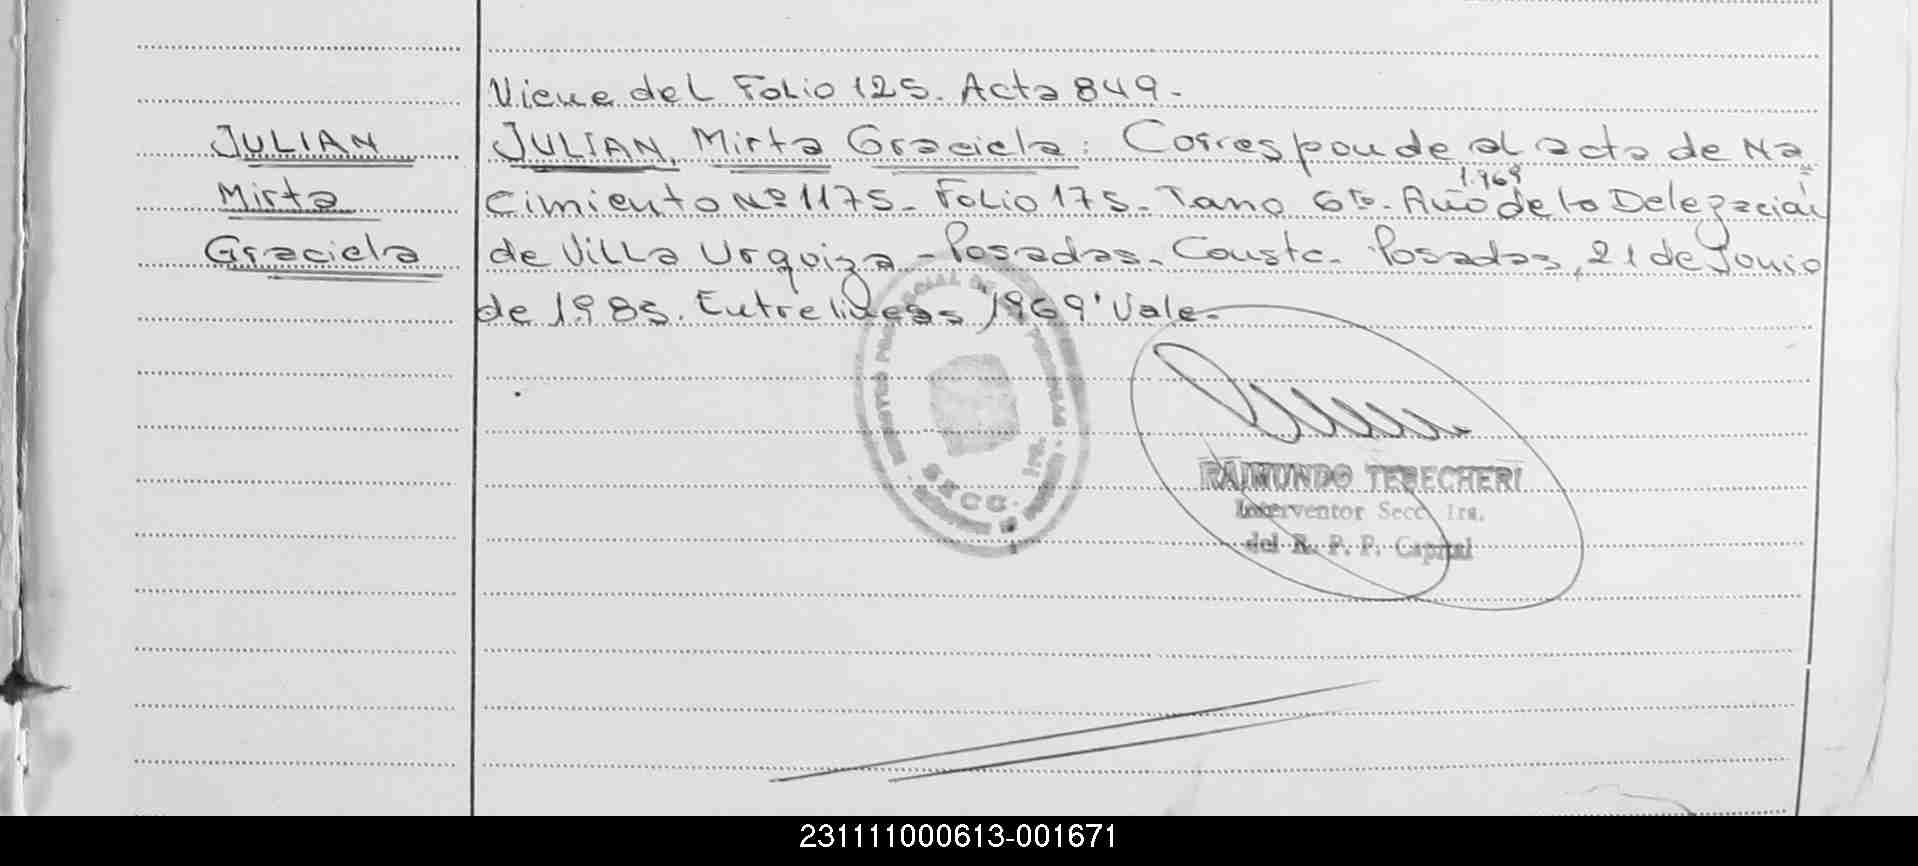 Viene del Folio 125. Acta 849.
JULIAN
Mirta
Graciela
JULIAN, Mirta Graciela: Corresponde al acta de Na
1.969
cimiento Nº 1175- Folio 175- Tomo 6to- Año de la Delegación
de Villa Urquiza - Posadas- Conste- Posadas, 21 de Junio
de 1985. Entrelíneas "1969" Vale-
SECC. 1ra.
RAIMUNDO TERECHERI
Interventor Secc. 1ra.
del R. P. P. Capital
231111000613-001671